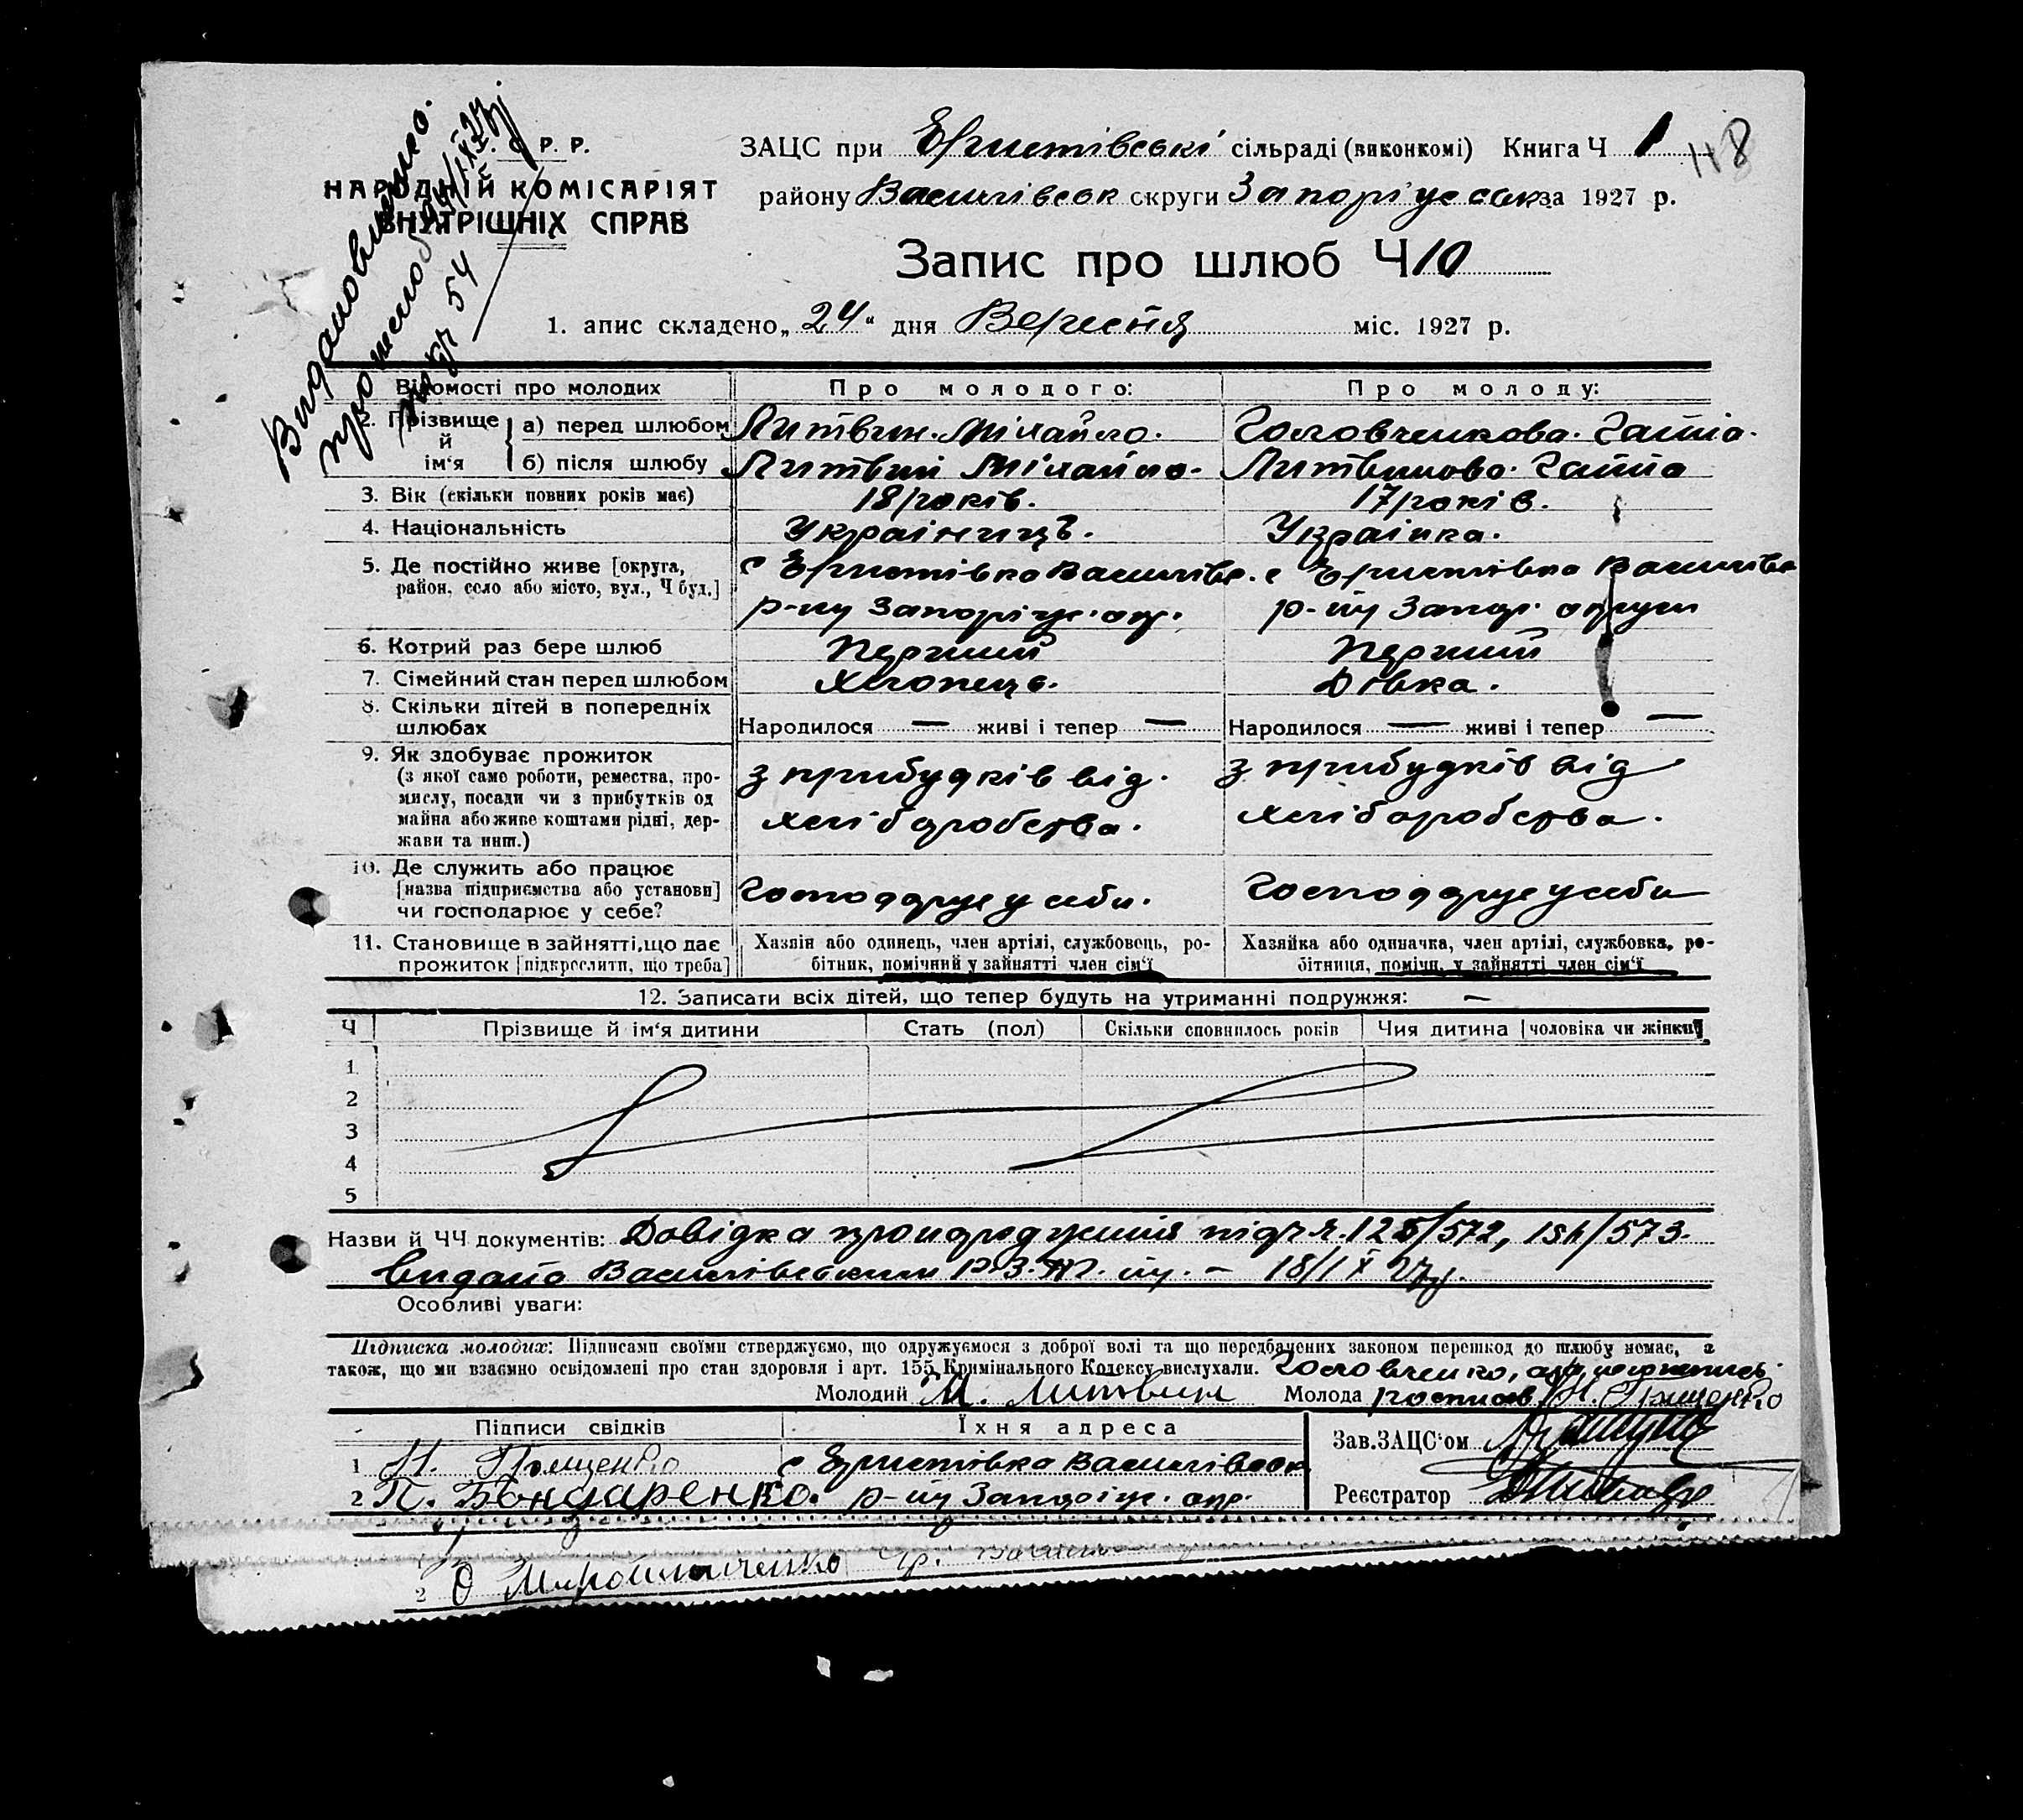 С. Р. Р.
НАРОДНІЙ КОМІСАРІЯТ
ВНУТРІШНІХ СПРАВ
ЗАЦС при Ористівські сільраді (виконкомі) Книга Ч 1
118
району Василівськ округи Запоріжськ за 1927 р.
Запис про шлюб Ч 10
1. апис складено „24“ дня Вересня міс. 1927 р.
Відомості про молодих
Про молодого:
Про молоду:
2. Прізвище й ім‘я
а) перед шлюбом
Литвин. Міхайло.
Головченкова. Ганна.
б) після шлюбу
Литвин Міхайло.
Литвинова. Ганна
3. Вік (скільки повних років має)
18 років.
17 років.
4. Національність
Українець.
Українка.
5. Де постійно живе [округа,
район, село або місто, вул., Ч буд.]
с Ористівка Василівс.
р-ну Запоріж. окр.
с Ористівка Василівс
р-ну Запор. округи
6. Котрий раз бере шлюб
Перший
Перший
7. Сімейний стан перед шлюбом
Хлопець.
Дівка.
8. Скільки дітей в попередніх
шлюбах
Народилося — живі і тепер —
Народилося — живі і тепер —
9. Як здобуває прожиток
(з якої само роботи, ремества, про-
мислу, посади чи з прибутків од
майна або живе коштами рідні, дер-
жави та инш.)
з прибудків від.
хліборобства.
з прибудків від
хліборобства.
10. Де служить або працює
[назва підприємства або установи]
чи господарює у себе?
Господарує у себи.
Господарує у себи
11. Становище в зайнятті, що дає
прожиток [підкреслити, що треба]
Хазяін або одинець, член артілі, службовець, ро-
бітник, помічний у зайнятті член сім‘ї
Хазяйка або одиначка, член артілі, службовка, ро-
бітниця, помічн. у зайнятті член сім‘ї
12. Записати всіх дітей, що тепер будуть на утриманні подружжя: —
Ч
Прізвище й ім‘я дитини
Стать (пол)
Скільки сповнилось років
Чия дитина [чоловіка чи жінки]
1
2
3
4
5
Назви й ЧЧ документів: Довідка про народження під ч. 125/572, /573.
видано Василівським ну. – 18/ІХ 27р.
Особливі уваги:
Підписка молодих: Підписами своїми стверджуємо, що одружуємося з доброї волі та що передбачених законом перешкод до шлюбу немає, а
також, що ми взаємно освідомлені про стан здоровля і арт. 155 Кримінального Кодексу вислухали. Головченко,
Молодий М. Литвин Молода росписав Н. Грищенко
Підписи свідків
Їхня адреса
1 Н. Грищенко
с Ористівка Василівськ
2 П. Бондаренко.
р-ну Запоріж. окр.
Зав. ЗАЦС‘ом
Реєстратор
2 О Мирошниченко